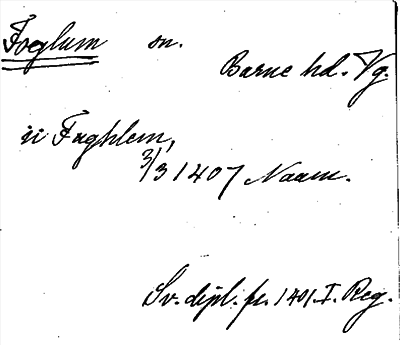 Foglum sn.
Barne hd. Vg.
ii Fughlem,
3/3 1407 Naam.
Sv. dipl. fr. 1401. I. Reg.